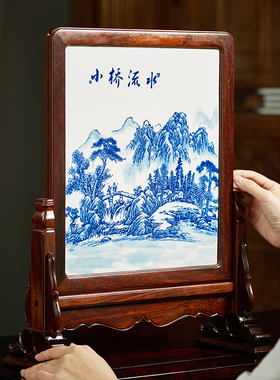 小桥流水